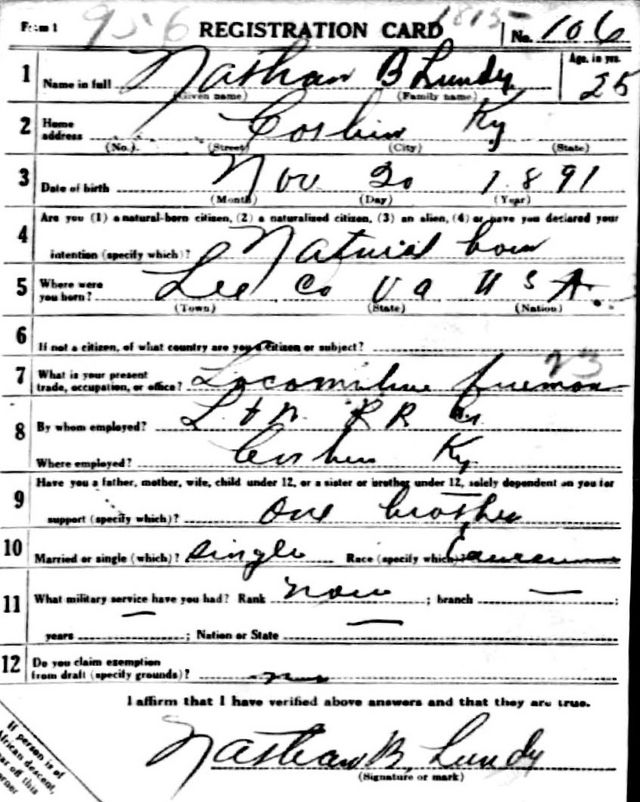 Form 1 956 REGISTRATION CARD 1815 No. 106
1 Name in full Nathan B Lundy Age, in yrs. 25
(Given name) (Family name)
2 Home address Corbin Ky
(No.) (Street) (City) (State)
3 Date of birth Nov 20 1891
(Month) (Day) (Year)
Are you (1) a natural-born citizen, (2) a naturalized citizen, (3) an alien, (4) or have you declared your
4 intention (specify which)? Natural born
5 Where were you born? Lee Co Va U S A.
(Town) (State) (Nation)
6 If not a citizen, of what country are you a citizen or subject?
23
7 What is your present trade, occupation, or office? Locomotive fireman
8 By whom employed? L & N R R Co
Where employed? Corbin Ky
Have you a father, mother, wife, child under 12, or a sister or brother under 12, solely dependent on you for
9 support (specify which)? One brother
10 Married or single (which)? Single Race (specify which)? Caucasian
11 What military service have you had? Rank none ; branch — ;
years — ; Nation or State —
12 Do you claim exemption from draft (specify grounds)?
I affirm that I have verified above answers and that they are true.
Nathan B. Lundy
(Signature or mark)
If person is of
African descent,
off this
corner